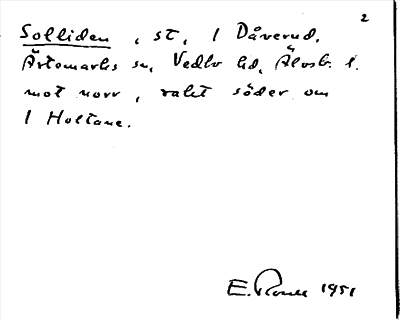 2
Solliden, st, 1 Dåverud,
Ärtemarks sn, Vedbo hd, Älvsb. l.
mot norr, rakt söder om
1 Holtane.
E. 1951